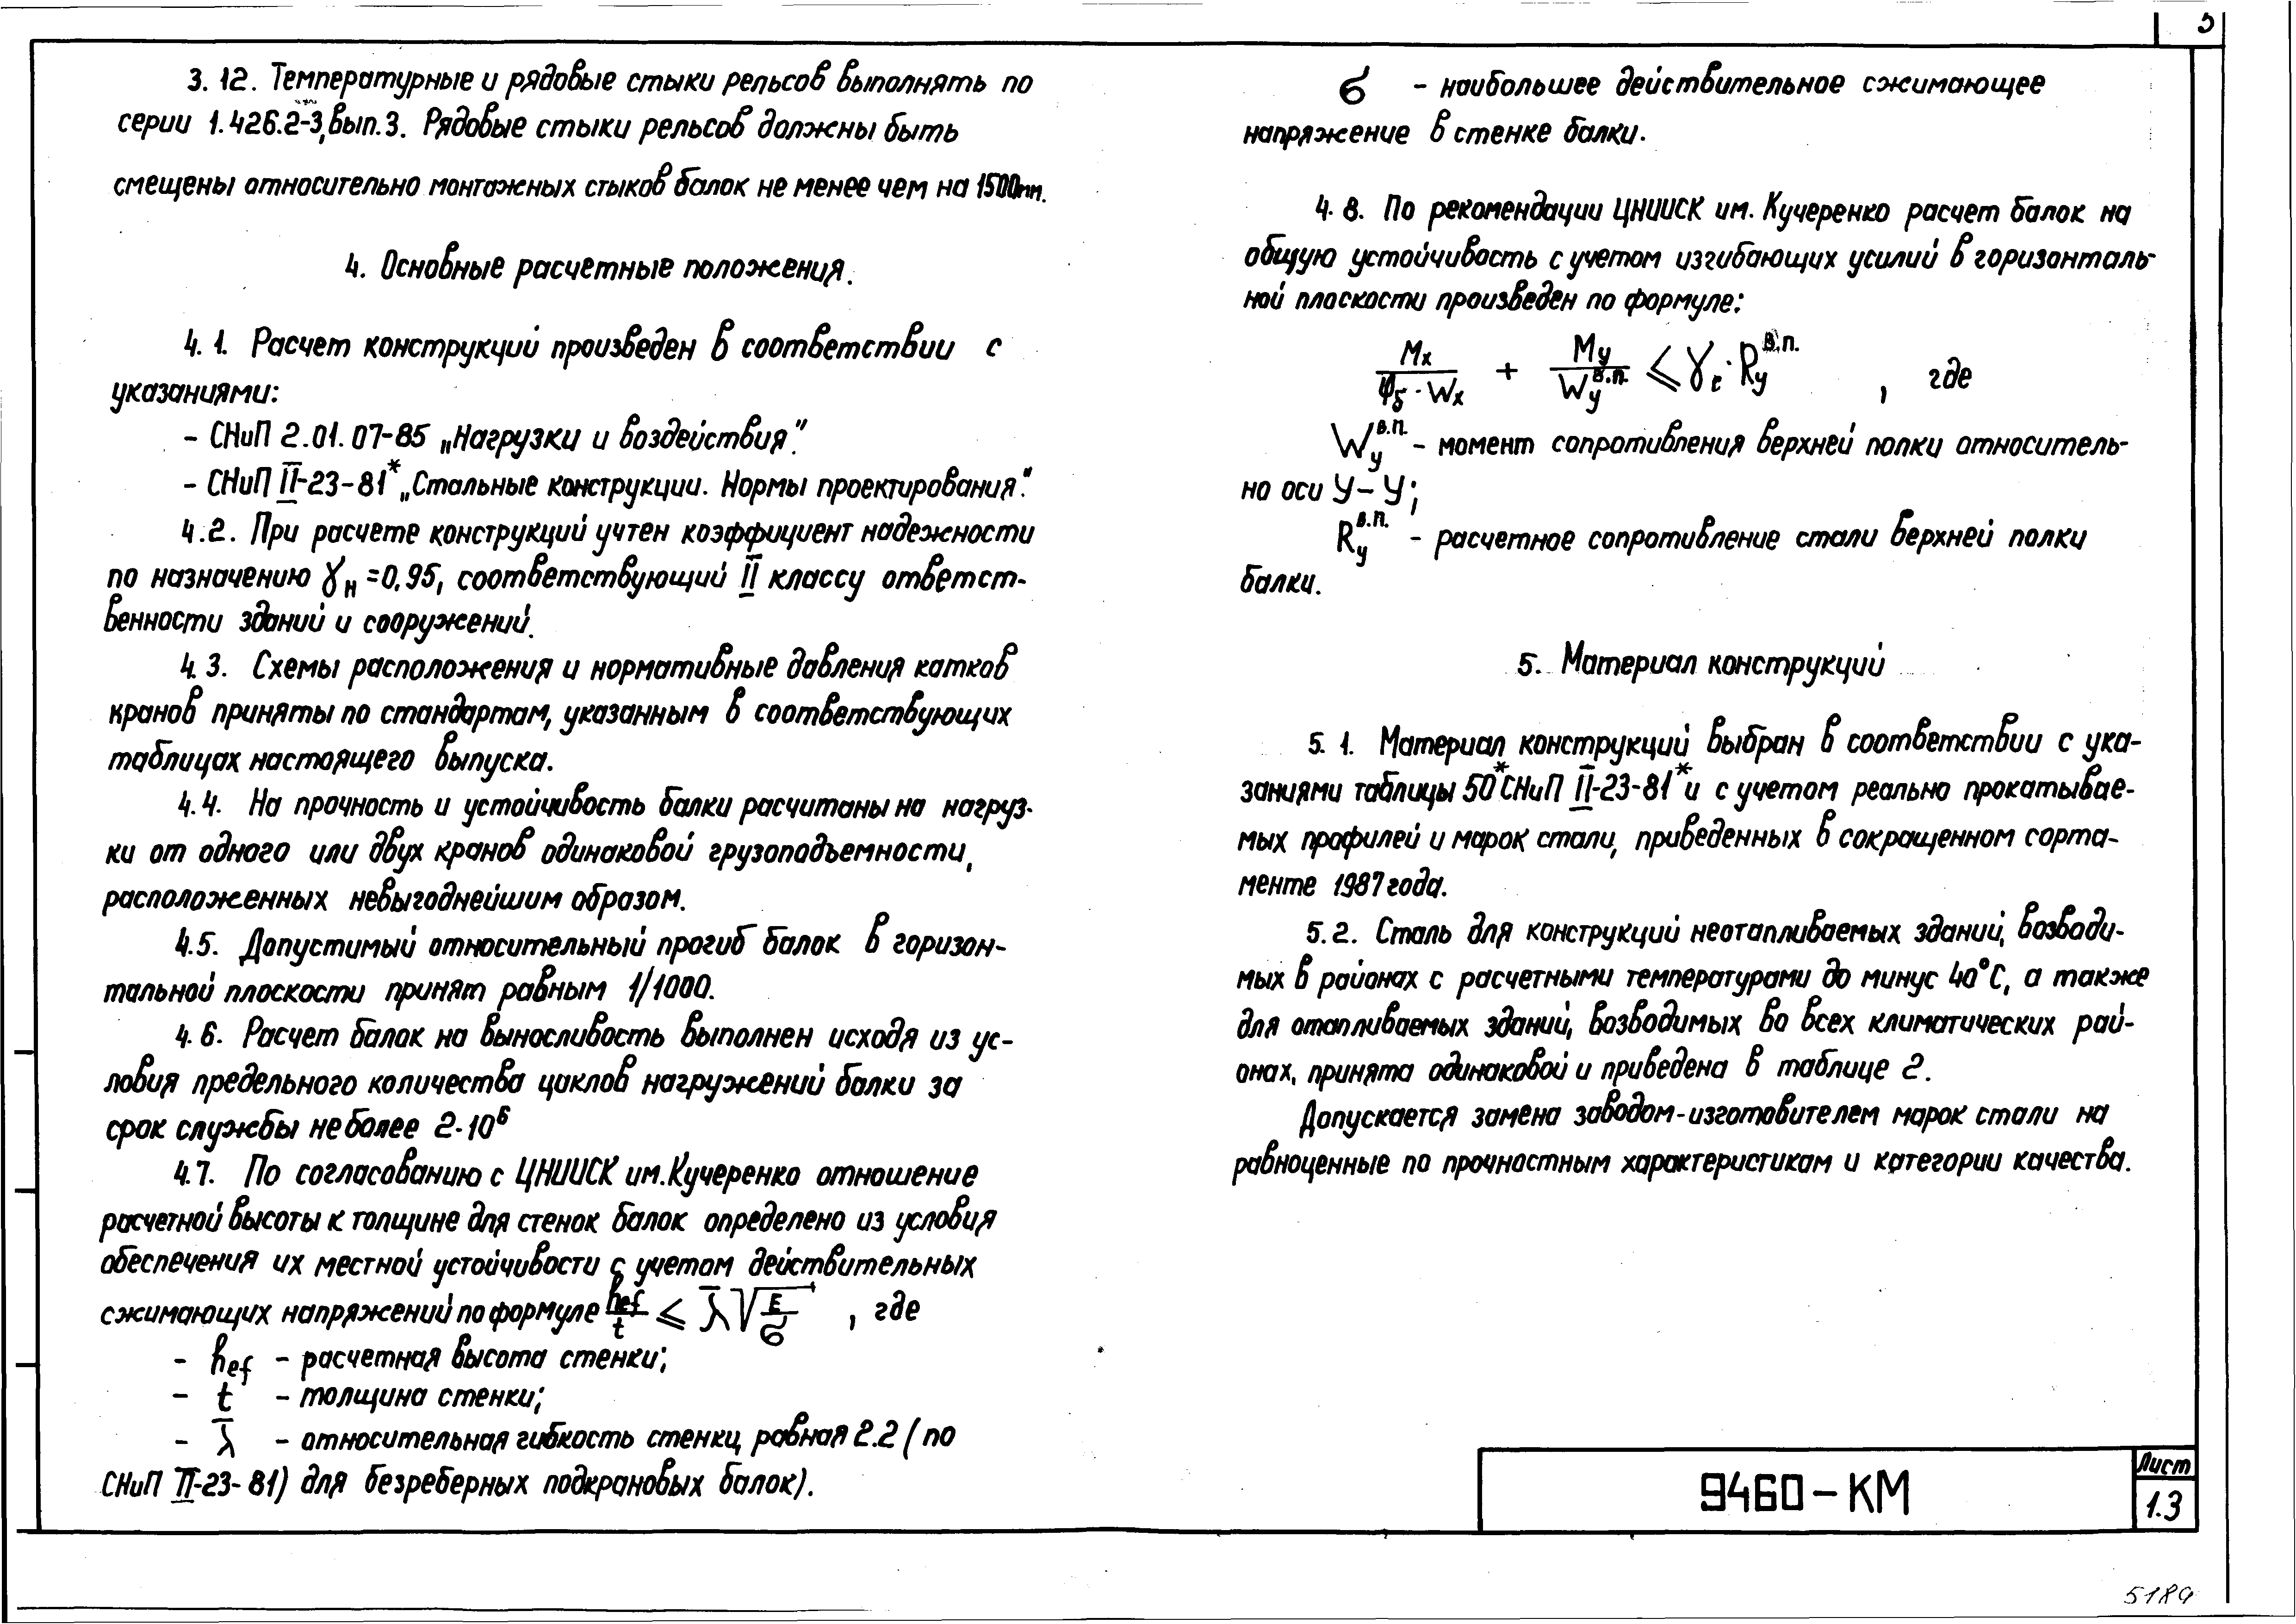 5
3.12. Температурные и рядовые стыки рельсов выполнять по
серии 1.426.2-3, вып.3. Рядовые стыки рельсов должны быть
смещены относительно монтажных стыков балок не менее чем на 1500мм.
4. Основные расчетные положения.
4.1. Расчет конструкций произведен в соответствии с
указаниями:
- СНиП 2.01.07-85 „Нагрузки и воздействия".
- СНиП II-23-81* „Стальные конструкции. Нормы проектирования".
4.2. При расчете конструкций учтен коэффициент надежности
по назначению γн =0.95, соответствующий II классу ответст-
венности зданий и сооружений.
4.3. Схемы расположения и нормативные давления катков
кранов приняты по стандартам, указанным в соответствующих
таблицах настоящего выпуска.
4.4. На прочность и устойчивость балки расчитаны на нагруз-
ки от одного или двух кранов одинаковой грузоподъемности,
расположенных невыгоднейшим образом.
4.5. Допустимый относительный прогиб балок в горизон-
тальной плоскости принят равным 1/1000.
4.6. Расчет балок на выносливость выполнен исходя из ус-
ловия предельного количества циклов нагружений балки за
срок службы не более 2·10⁶
4.7. По согласованию с ЦНИИСК им.Кучеренко отношение
расчетной высоты к толщине для стенок балок определено из условия
обеспечения их местной устойчивости с учетом действительных
сжимающих напряжений по формуле hef/t ≤ λ̄ √E/σ , где
- hef - расчетная высота стенки;
- t - толщина стенки;
- λ̄ - относительная гибкость стенки, равная 2.2 (по
СНиП II-23-81) для безреберных подкрановых балок).
σ - наибольшее действительное сжимающее
напряжение в стенке балки.
4.8. По рекомендации ЦНИИСК им. Кучеренко расчет балок на
общую устойчивость с учетом изгибающих усилий в горизонталь-
ной плоскости произведен по формуле:
Mx/φб·Wx + My/Wy в.п. ≤ γc·Ry в.п. , где
Wy в.п. - момент сопротивления верхней полки относитель-
но оси У-У;
Ry в.п. - расчетное сопротивление стали верхней полки
балки.
5. Материал конструкций
5.1. Материал конструкций выбран в соответствии с ука-
заниями таблицы 50* СНиП II-23-81* и с учетом реально прокатывае-
мых профилей и марок стали, приведенных в сокращенном сорта-
менте 1987 года.
5.2. Сталь для конструкций неотапливаемых зданий, возводи-
мых в районах с расчетными температурами до минус 40°С, а также
для отапливаемых зданий, возводимых во всех климатических рай-
онах, принята одинаковой и приведена в таблице 2.
Допускается замена заводом-изготовителем марок стали на
равноценные по прочностным характеристикам и категории качества.
9460-КМ
Лист
1.3
5189